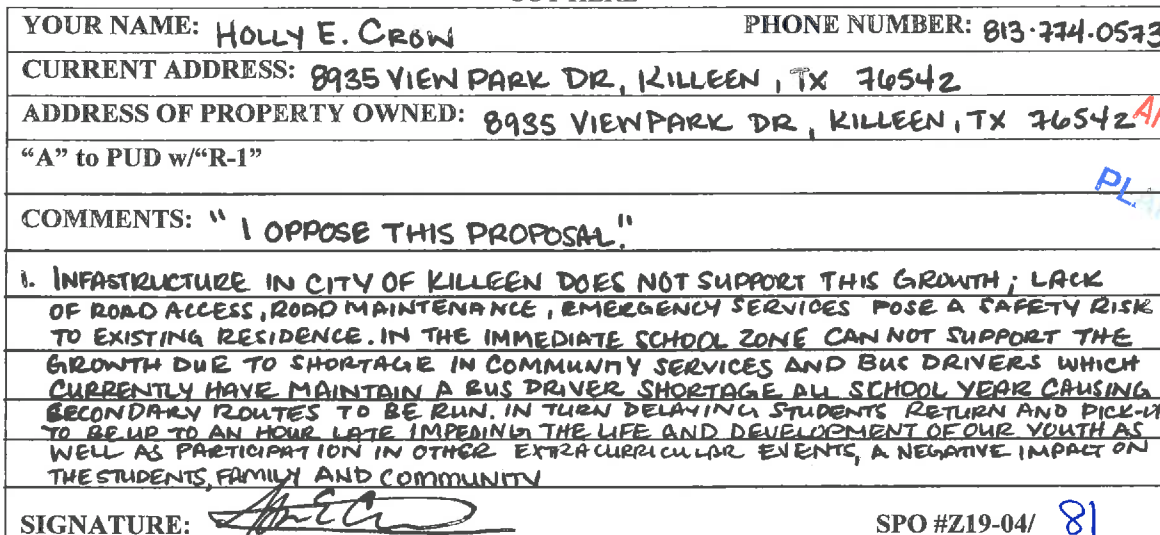 YOUR NAME: HOLLY E. CROW PHONE NUMBER: 813.774.0573
CURRENT ADDRESS: 8935 VIEW PARK DR, KILLEEN, TX 76542
ADDRESS OF PROPERTY OWNED: 8935 VIEWPARK DR, KILLEEN, TX 76542
"A" to PUD w/"R-1"
PL
COMMENTS: "I OPPOSE THIS PROPOSAL."
1. INFASTRUCTURE IN CITY OF KILLEEN DOES NOT SUPPORT THIS GROWTH; LACK
OF ROAD ACCESS, ROAD MAINTENANCE, EMERGENCY SERVICES POSE A SAFETY RISK
TO EXISTING RESIDENCE. IN THE IMMEDIATE SCHOOL ZONE CAN NOT SUPPORT THE
GROWTH DUE TO SHORTAGE IN COMMUNITY SERVICES AND BUS DRIVERS WHICH
CURRENTLY HAVE MAINTAIN A BUS DRIVER SHORTAGE ALL SCHOOL YEAR CAUSING
SECONDARY ROUTES TO BE RUN. IN TURN DELAYING STUDENTS RETURN AND PICK-UP
TO BE UP TO AN HOUR LATE IMPEDING THE LIFE AND DEVELOPMENT OF OUR YOUTH AS
WELL AS PARTICIPATION IN OTHER EXTRACURRICULAR EVENTS, A NEGATIVE IMPACT ON
THE STUDENTS, FAMILY AND COMMUNITY
SIGNATURE: SPO #Z19-04/ 81